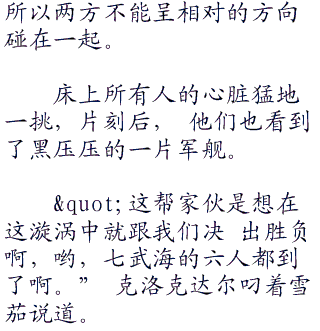 所以两方不能呈相对的方向
碰在一起。
床上所有人的心脏猛地
一挑，片刻后， 他们也看到
了黑压压的一片军舰。
&quot;这帮家伙是想在
这漩涡中就跟我们决 出胜负
啊，哟，七武海的六人都到
了啊。” 克洛克达尔叼着雪
茄说道。